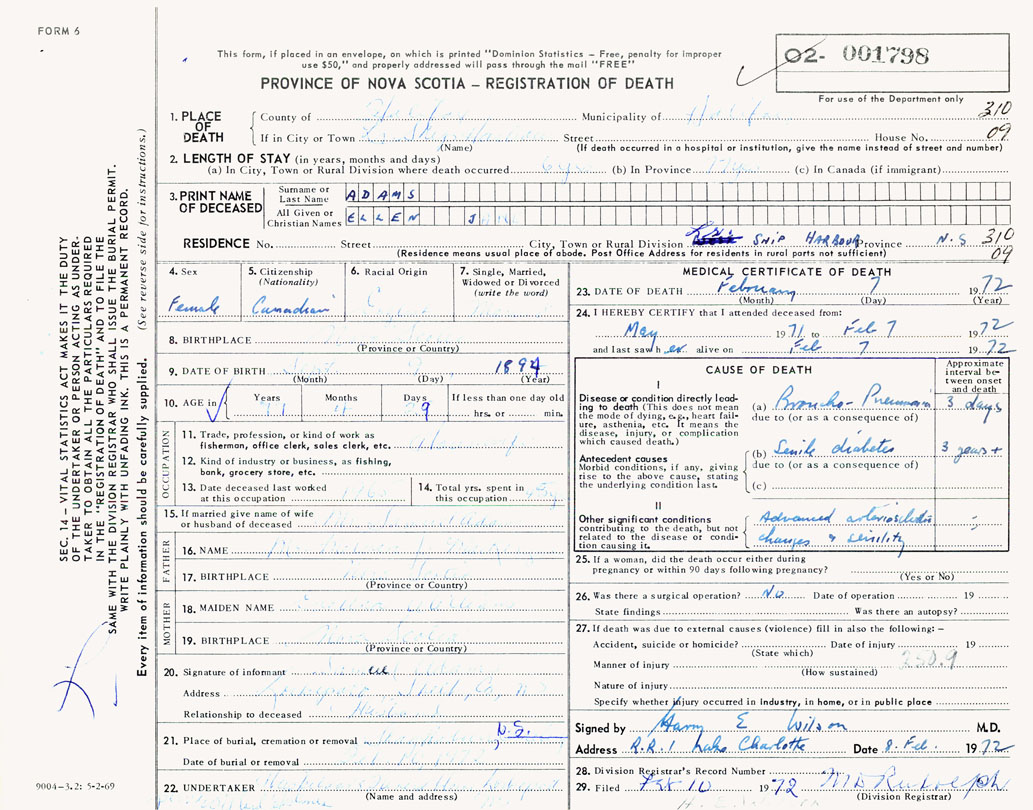 FORM 6
This form, if placed in an envelope, on which is printed "Dominion Statistics – Free, penalty for improper
use $50," and properly addressed will pass through the mail "FREE"
PROVINCE OF NOVA SCOTIA – REGISTRATION OF DEATH
02- 001798
For use of the Department only
SEC. 14 – VITAL STATISTICS ACT MAKES IT THE DUTY
OF THE UNDERTAKER OR PERSON ACTING AS UNDER-
TAKER TO OBTAIN ALL THE PARTICULARS REQUIRED
IN THE "REGISTRATION OF DEATH" AND TO FILE THE
SAME WITH THE DIVISION REGISTRAR WHO SHALL ISSUE THE BURIAL PERMIT.
WRITE PLAINLY WITH UNFADING INK. THIS IS A PERMANENT RECORD.
Every item of information should be carefully supplied. (See reverse side for instructions.)
1. PLACE OF DEATH
County of Halifax Municipality of Halifax 310
If in City or Town Street House No. 09
(Name) (If death occurred in a hospital or institution, give the name instead of street and number)
2. LENGTH OF STAY (in years, months and days)
(a) In City, Town or Rural Division where death occurred (b) In Province (c) In Canada (if immigrant)
3. PRINT NAME OF DECEASED
Surname or Last Name ADAMS
All Given or Christian Names ELLEN JANE
RESIDENCE No. Street City, Town or Rural Division SHIP HARBOUR Province N.S 310
(Residence means usual place of abode. Post Office Address for residents in rural parts not sufficient) 09
4. Sex Female
5. Citizenship (Nationality) Canadian
6. Racial Origin
7. Single, Married, Widowed or Divorced (write the word)
8. BIRTHPLACE
(Province or Country)
9. DATE OF BIRTH 1894
(Month) (Day) (Year)
10. AGE in Years Months Days 29 If less than one day old
hrs. or min.
OCCUPATION
11. Trade, profession, or kind of work as
fisherman, office clerk, sales clerk, etc.
12. Kind of industry or business, as fishing,
bank, grocery store, etc.
13. Date deceased last worked
at this occupation
14. Total yrs. spent in
this occupation
15. If married give name of wife
or husband of deceased
FATHER
16. NAME
17. BIRTHPLACE
(Province or Country)
MOTHER
18. MAIDEN NAME
19. BIRTHPLACE Nova Scotia
(Province or Country)
20. Signature of informant
Address
Relationship to deceased Husband
21. Place of burial, cremation or removal N.S.
Date of burial or removal
22. UNDERTAKER
(Name and address)
9004–3.2: 5-2-69
MEDICAL CERTIFICATE OF DEATH
23. DATE OF DEATH February 7 1972
(Month) (Day) (Year)
24. I HEREBY CERTIFY that I attended deceased from:
May 1971 to Feb 7 1972
and last saw her alive on Feb 7 1972
CAUSE OF DEATH
Approximate interval between onset and death
I
Disease or condition directly lead-
ing to death (This does not mean
the mode of dying, e.g., heart fail-
ure, asthenia, etc. It means the
disease, injury, or complication
which caused death.)
(a) Broncho-Pneumonia 3 days
due to (or as a consequence of)
Antecedent causes
Morbid conditions, if any, giving
rise to the above cause, stating
the underlying condition last.
(b) Senile diabetes 3 years +
due to (or as a consequence of)
(c)
II
Other significant conditions
contributing to the death, but not
related to the disease or condi-
tion causing it.
Advanced arteriosclerotic
changes & senility
25. If a woman, did the death occur either during
pregnancy or within 90 days following pregnancy?
(Yes or No)
26. Was there a surgical operation? No Date of operation 19
State findings Was there an autopsy?
27. If death was due to external causes (violence) fill in also the following: –
Accident, suicide or homicide? Date of injury 19
(State which)
Manner of injury 250.9
(How sustained)
Nature of injury
Specify whether injury occurred in industry, in home, or in public place
Signed by Harry E Wilson M.D.
Address R.R.1 Lake Charlotte Date 8 Feb. 1972
28. Division Registrar's Record Number
29. Filed Feb 10 1972 M D Rudolph
(Division Registrar)